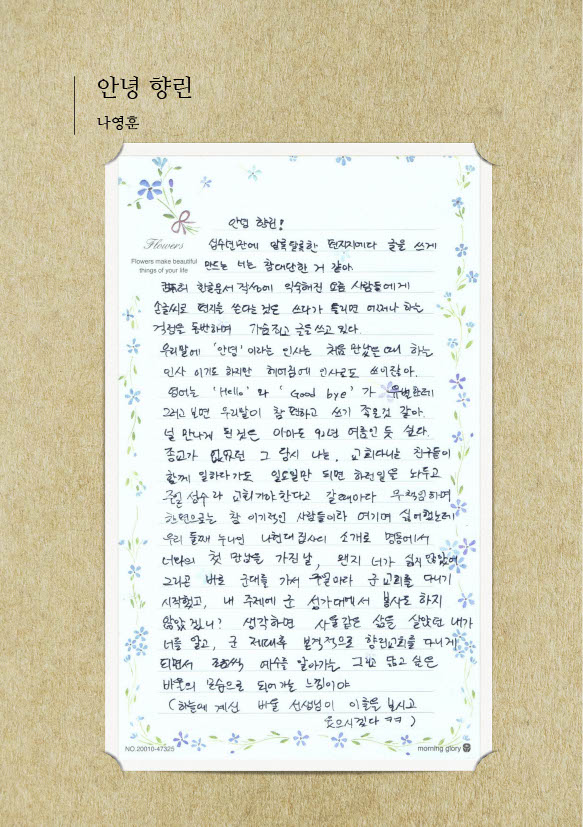 안녕 향린
나영훈
안녕 향린!
Flowers
Flowers make beautiful
things of your life
십수년만에 알록달록한 편지지에다 글을 쓰게
만드는 너는 참 대단한 거 같아.
한글문서 작성에 익숙해진 요즘 사람들에게
손글씨로 편지를 쓴다는 것은 쓰다가 틀리면 어쩌나 하는
걱정을 동반하며 가슴 졸이고 글을 쓰고 있다.
우리말에 '안녕' 이라는 인사는 처음 만났을 때 하는
인사 이기도 하지만 헤어짐에 인사로도 쓰이잖아.
영어는 'Hello' 와 'Good bye' 가 구별한데
그러고 보면 우리말이 참 편하고 쓰기 좋은것 같아.
널 만나게 된것은 아마도 91년 여름인 듯 싶다.
종교가 없었던 그 당시 나는, 교회다니는 친구들이
함께 일하다가도 일요일만 되면 하던일을 놔두고
주일 성수라 교회가야 한다고 갈때마다 무책임하며
한편으로는 참 이기적인 사람들이라 여기며 싫어했는데
우리 둘째 누나인 나현대집사의 소개로 명동에서
너와의 첫 만남을 가진 날, 왠지 네가 싫지 않았어
그리곤 바로 군대를 가서 주일마다 군 교회를 다니기
시작했고, 내 주제에 군 성가대에서 봉사도 하지
않았겠니? 생각하면 사울같은 삶을 살았던 내가
너를 알고, 군 제대후 본격적으로 향린교회를 다니게
되면서 조금씩 예수를 알아가는 그리고 닮고 싶은
바울의 모습으로 되어가는 느낌이야
(하늘에 계신 바울 선생님이 이 글을 보시고
웃으시겠다 ㅋㅋ)
NO.20010-47325
morning glory